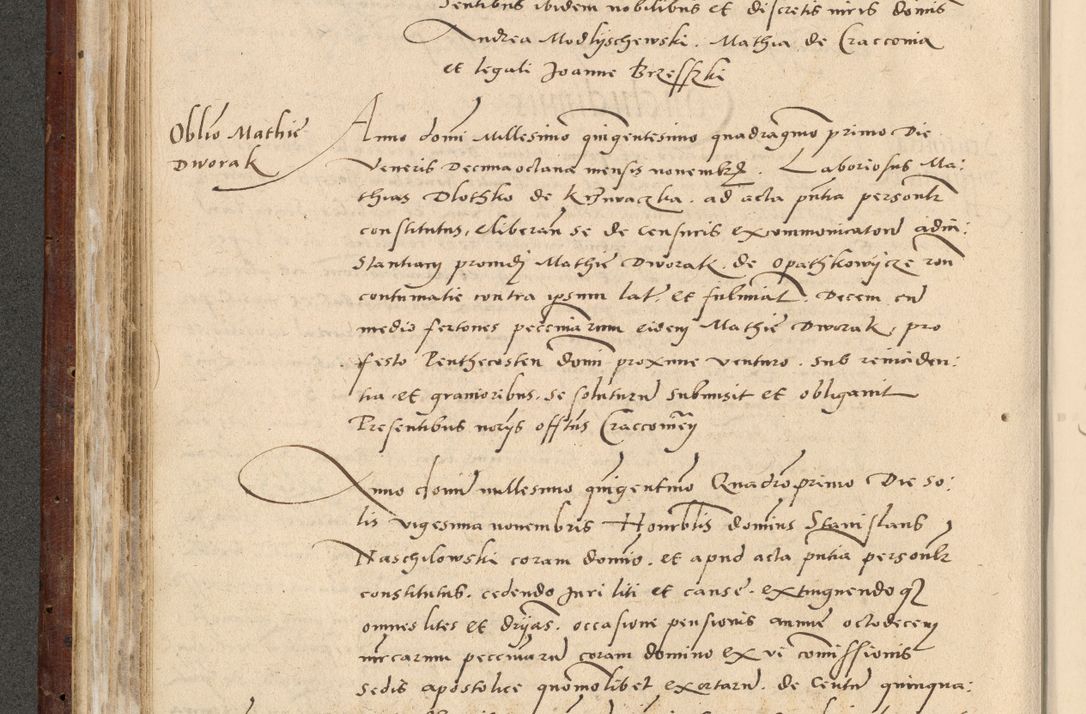 sentibus ibidem nobilibus et discretis viris dominis
Andrea Modlyschewski . Mathia de Cracconia
et legati Joanne Brzesszki
Oblio Mathie
Dworak
Anno domi Millesimo quingentesimo quadragmo primo Die
Veneris Decimaoctava mensis novembr . Laboriosus Ma:
thias Dlothko de Krzwaczka . ad acta pntia personlr
constitutus, eliberan se de censuris excommunicatonu ad in:
stantiam providi Mathie Dworak de Opathkowycze ron
contumatie contra ipsum lat . et fulminat . Decem cu
medio fertones pecuniarum eidem Mathie Dworak, pro
festo Penthecosten domi proxime venturo . sub reinciden:
tia et gravioribus . se soluturu submisit et obligavit
Presentibus norys offtus Cracconien
Anno domi millesimo quigentimo Quadro primo Die so:
lis vigesima novembris Honrblis dominus Stanislaus
Naschilowski coram domio . et apud acta pntia personlr
constitutus . cedendo juri liti et cause . extinguendo q
omnes lites et dryas . occasione pensionis annue octodecem
mrcarum pecuniaru coram domino ex vi comissionis
sedis apostolice quomolibet exortaru . de centu quinqua: